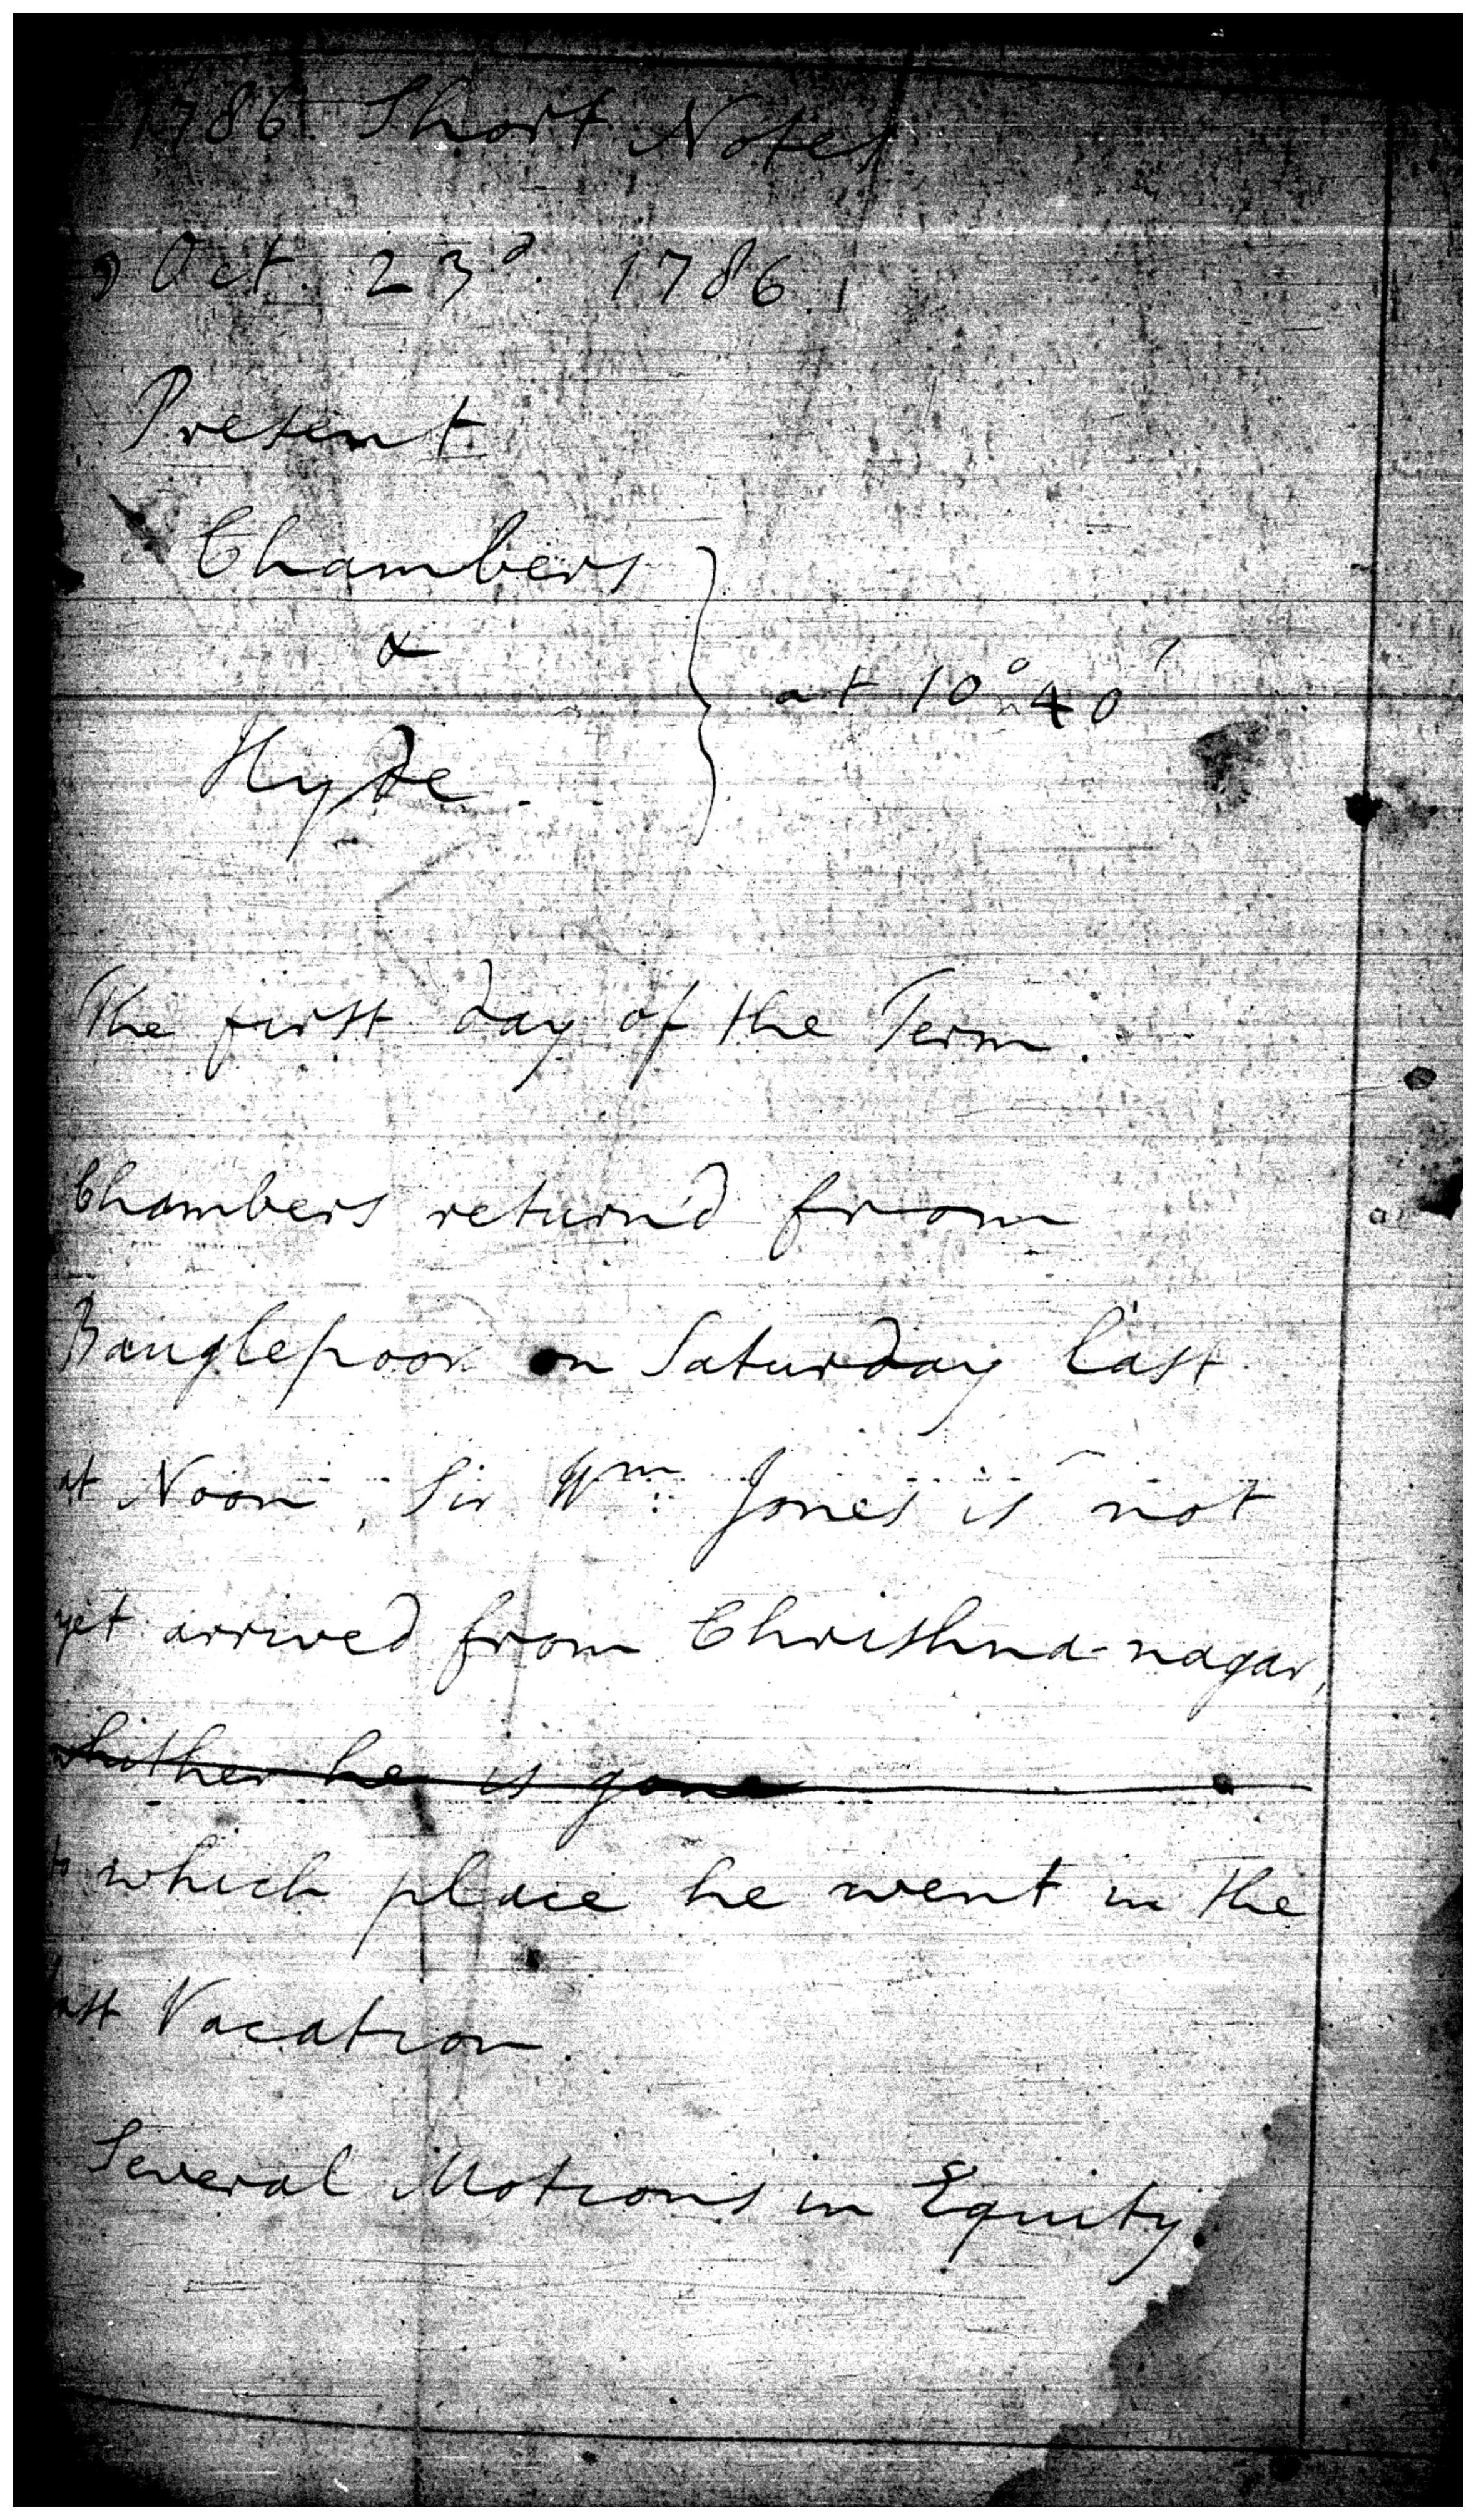 1786. Short Notes
☽ Oct. 23d. 1786.
Present
Chambers
&
Hyde.
at 10° 40'
The first day of the Term.
Chambers return'd from
Bauglepoor on Saturday last
at Noon, Sir Wm. Jones is not
yet arrived from Chrishna-nagar,
whither he is gone
to which place he went in the
last Vacation.
Several Motions in Equity.